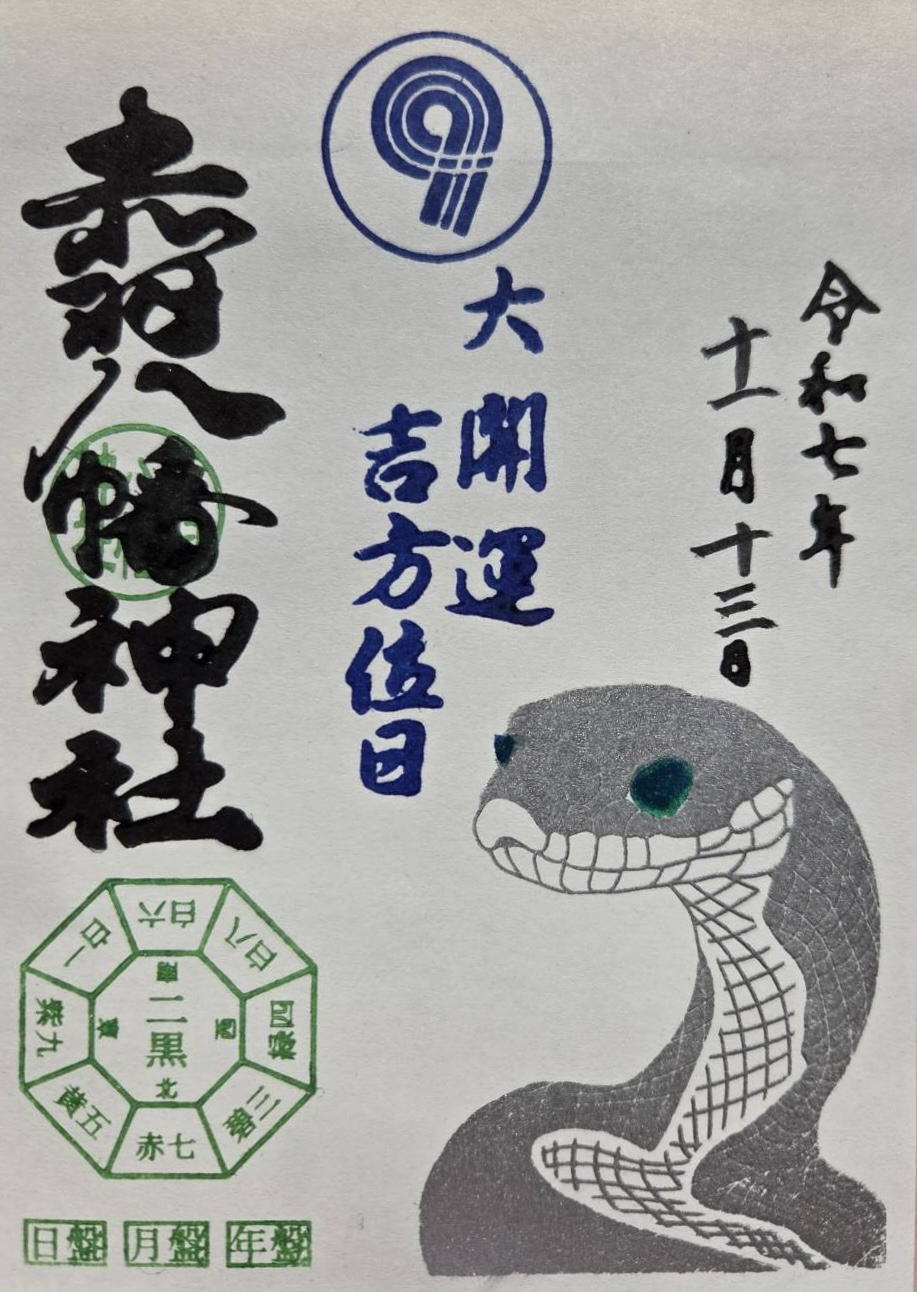 令和七年
十一月十三日
9
大開運
吉方位日
赤羽八幡神社
六白
八白
四緑
三碧
七赤
五黄
九紫
一白
南
西
北
東
二黒
年盤
月盤
日盤